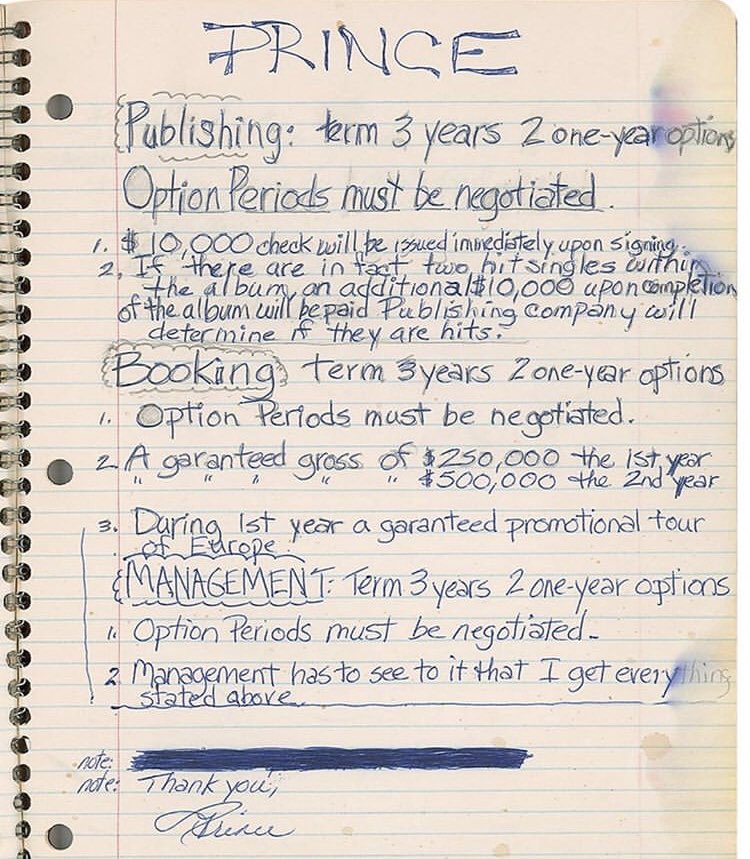 PRINCE
Publishing: term 3 years 2 one-year options
Option Periods must be negotiated.
1. $10,000 check will be issued immediately upon signing.
2. If there are in fact two hit singles within
the album, an additional $10,000 upon completion
of the album will be paid Publishing company will
determine if they are hits.
Booking term 3 years 2 one-year options
1. Option Periods must be negotiated.
2. A garanteed gross of $250,000 the 1st year
" " " " $500,000 the 2nd year
3. During 1st year a garanteed promotional tour
of Europe.
MANAGEMENT: Term 3 years 2 one-year options
1. Option Periods must be negotiated.
2 Management has to see to it that I get everything
stated above.
note:
note: Thank you,
Prince